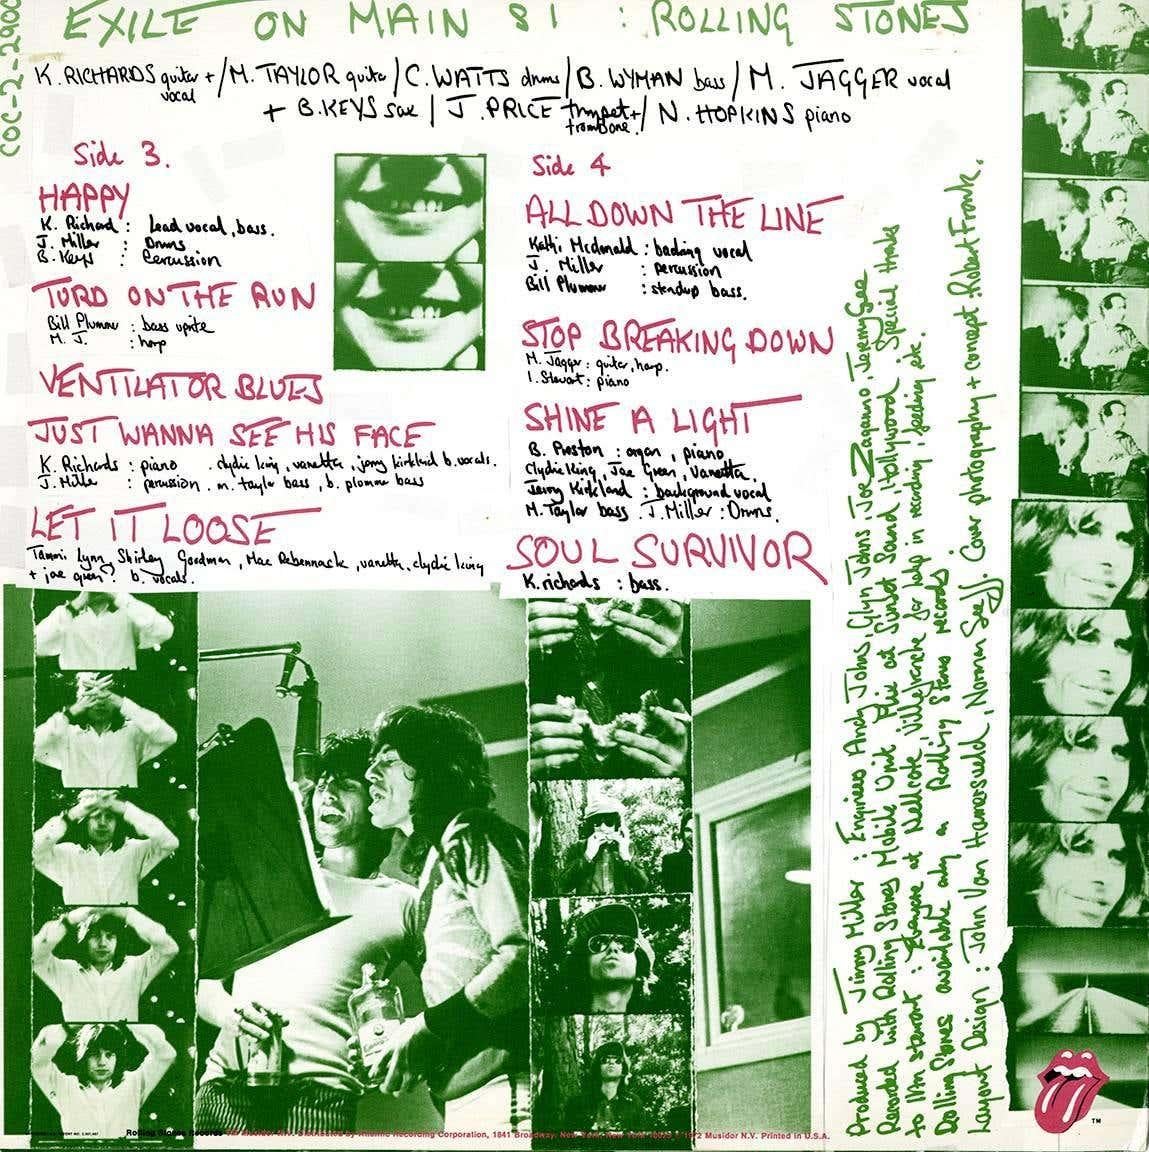 EXILE ON MAIN ST : ROLLING STONES
COC-2-2900
K. RICHARDS guitar + vocal / M. TAYLOR guitar / C. WATTS drums / B. WYMAN bass / M. JAGGER vocal
+ B. KEYS sax / J. PRICE trumpet + trombone / N. HOPKINS piano
Side 3.
HAPPY
K. Richard : Lead vocal, bass.
J. Miller : Drums
B. Keys : Percussion
TURD ON THE RUN
Bill Plummer : bass uprite
M. J. : harp
VENTILATOR BLUES
JUST WANNA SEE HIS FACE
K. Richards : piano . clydie king, vanetta, jerry kirkland b. vocals.
J. Miller : percussion . m. taylor bass, b. plummer bass
LET IT LOOSE
Tammi Lynn, Shirley Goodman, Mac Rebennack, vanetta, clydie king
+ joe green : b. vocals.
Side 4
ALL DOWN THE LINE
Kathi Mcdonald : backing vocal
J. Miller : percussion
Bill Plummer : standup bass.
STOP BREAKING DOWN
M. Jagger : guitar, harp.
I. Stewart : piano
SHINE A LIGHT
B. Preston : organ, piano
Clydie King, Joe Green, Vanetta,
Jerry Kirkland : background vocal
M. Taylor bass . J. Miller : Drums.
SOUL SURVIVOR
K. richards : bass.
Produced by Jimmy Miller : Engineers Andy Johns, Glyn Johns, Joe Zagarino, Jeremy Gee
Recorded with Rolling Stones Mobile Unit Plus at Sunset Sound, Hollywood Special thanks
to Ian stewart : at Nellcote Villefranche for help in recording, feeding etc.
Rolling Stones available only on Rolling Stones records
Layout Design : John Van Hamersveld, Norman Seeff. Cover photography + concept : Robert Frank.
Rolling Stones Records Musidor N.V. Distributed by Atlantic Recording Corporation, 1841 Broadway, New York, New York 10023 © 1972 Musidor N.V. Printed in U.S.A.
TM